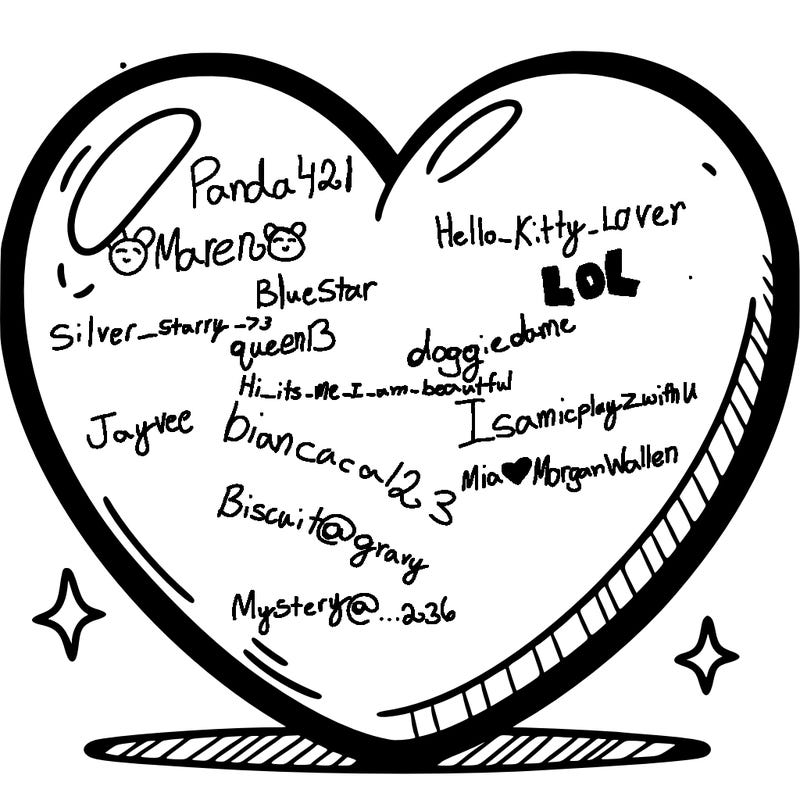 Panda421
Maren
Hello_Kitty_Lover
LOL
BlueStar
Silver_starry->3
queenB
doggiedame
Hi_its_me_I_am_beautful
Isamicplayzwithu
Jayvee
biancaca123
Mia♥MorganWallen
Biscuit@gravy
Mystery@...236